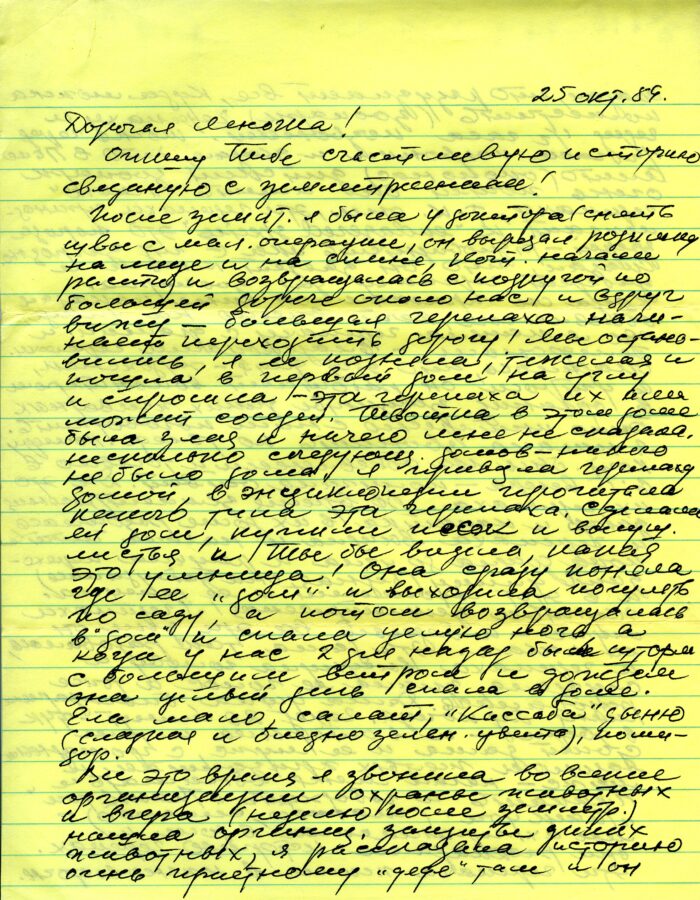 25 окт. 89.
Дорогая Леноша!
Опишу Тебе счастливую историю
связаную с землетрясением!
После землт. я была у доктора (снять
швы с мал. операции, он вырезал родинки
на лице и на спине, кот. начали
расти) и возвращалась с подругой по
большой дороге около нас и вдруг
вижу – большая черепаха начи-
нает переходить дорогу! Мы остано-
вились, я ее подняла, тяжелая и
пошла в первый дом на углу
и спросила – эта черепаха их или
может соседей. Тётка в этом доме
была злая и ничего мне не сказала.
несколько следующ. домов – никого
не было дома и я привезла черепаху
домой, в энциклопедии прочитала
какого типа эта черепаха. Сделала
ей дом, купили песок и высуш.
листья и Ты бы видела, какая
это умница! Она сразу поняла
где ее „дом" и выходила погулять
по саду, а потом возвращалась
в „дом" и спала целую ночь а
когда у нас 2 дня назад был шторм
с большим ветром и дождем
она целый день спала в доме.
Ела мало, салат, "Кассаба" дыню
(сладкая и бледно зелен. цвета), поми-
дор.
Все это время я звонила во всякие
организации охраны животных
и вчера (неделю после землетр.)
нашла организ. защиты диких
животных, я рассказала историю
очень приятному „дяде" там и он